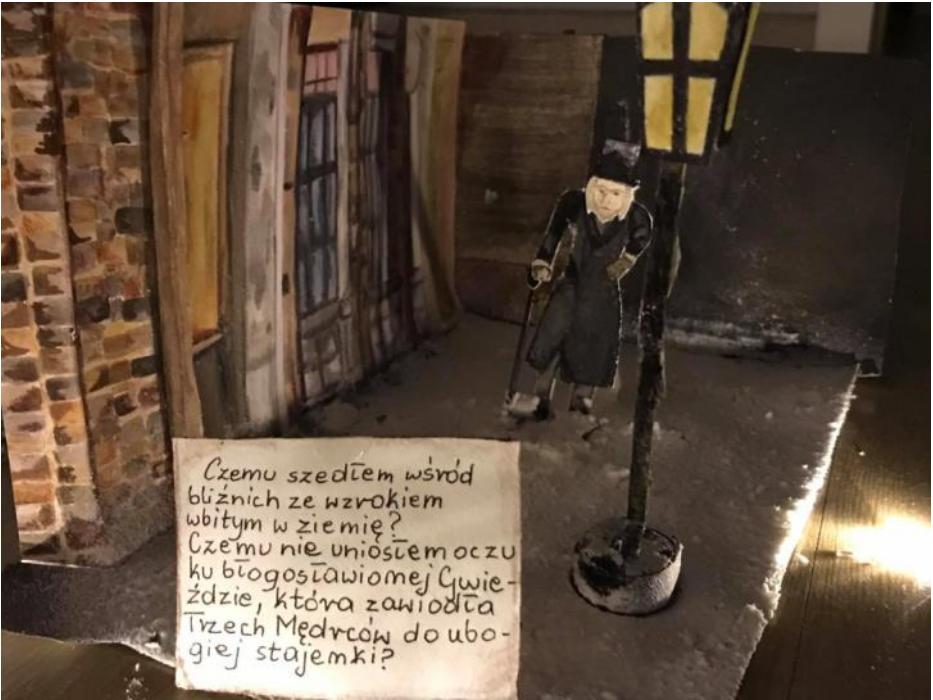 Czemu szedłem wśród
bliźnich ze wzrokiem
wbitym w ziemię?
Czemu nie uniosłem oczu
ku błogosławionej Gwie-
ździe, która zawiodła
Trzech Mędrców do ubo-
giej stajemki?